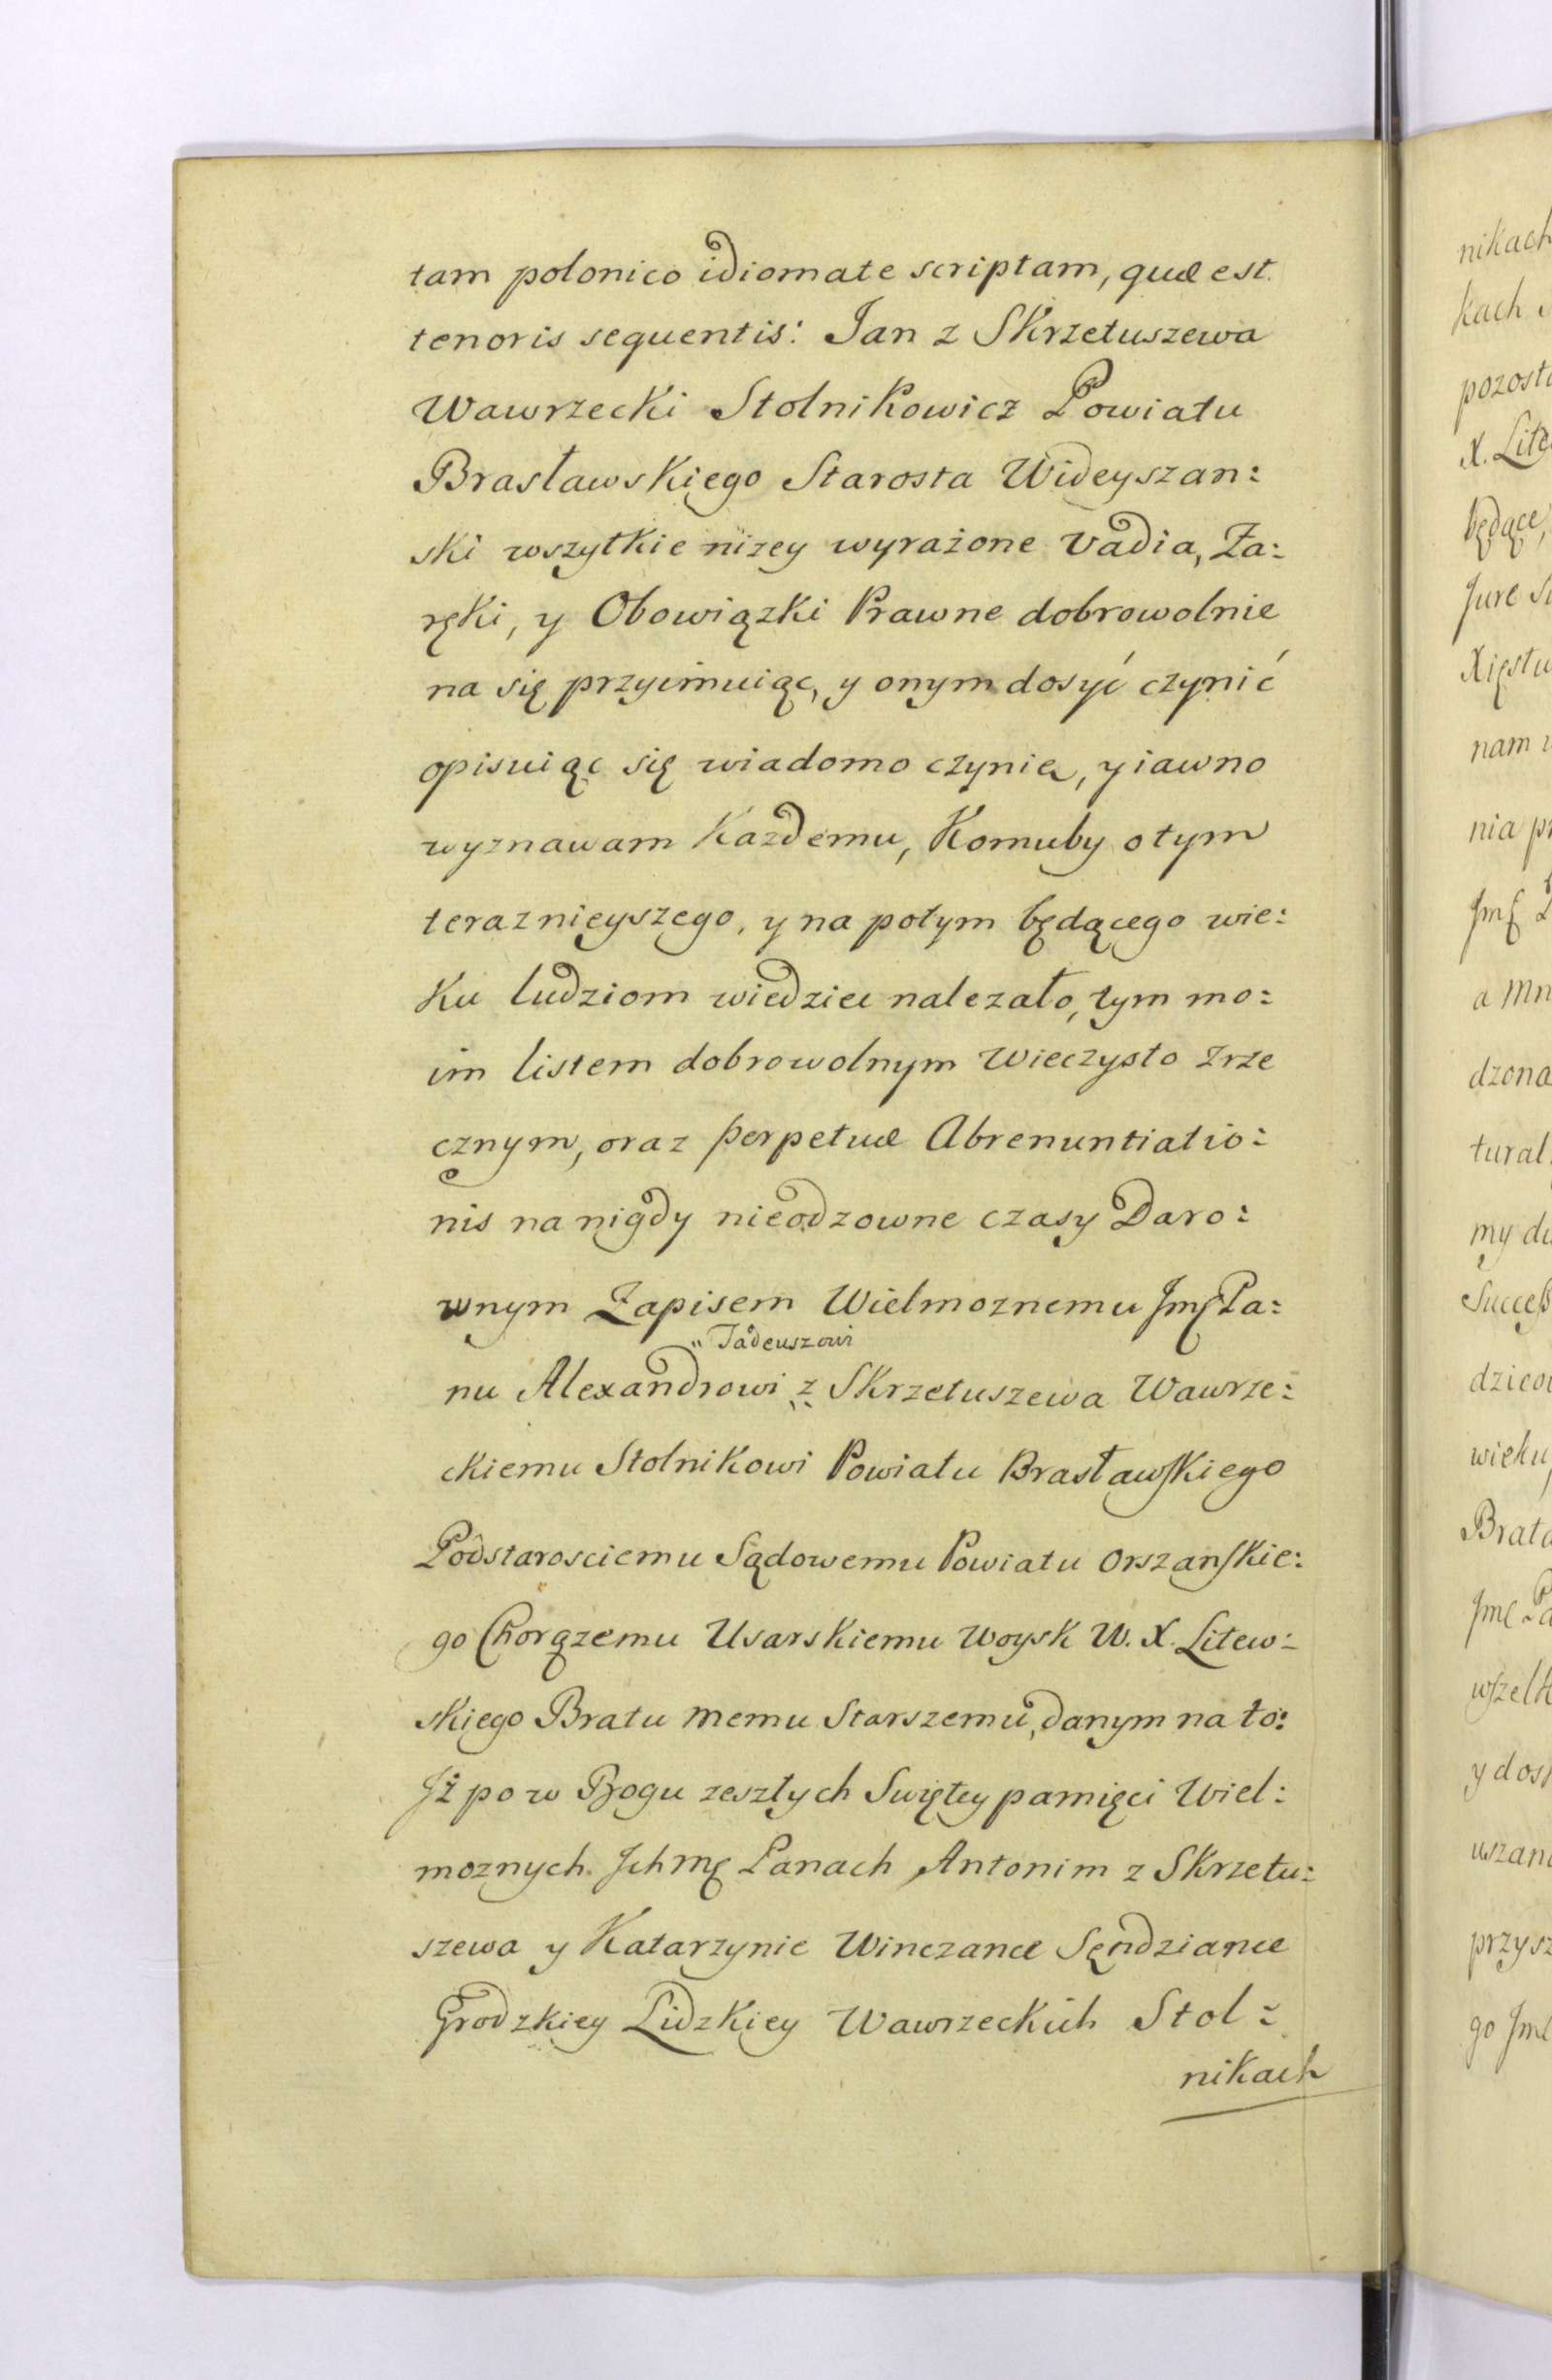 tam polonico idiomate scriptam, quæ est
tenoris sequentis: Jan z Skrzetuszewa
Wawrzecki Stolnikowicz Powiatu
Brasławskiego Starosta Wideyszan:
ski wszytkie niżey wyrażone Vadia, Za:
ręki, y Obowiązki Prawne dobrowolnie
na się przyimuiąc, y onym dosyć czynić
opisuiąc się wiadomo czynię, y iawno
wyznawam Każdemu, Komuby o tym
teraznieyszego, y na potym będącego wie:
Ku ludziom wiedziec nalezało, tym mo:
im listem dobrowolnym Wieczysto Zrze
cznym, oraz perpetuæ Abrenuntiatio:
nis na nigdy nieodzowne czasy Daro:
wnym Zapisem Wielmoznemu Jmć Pa:
" Tadeuszowi
nu Alexandrowi z Skrzetuszewa Wawrze:
ckiemu Stolnikowi Powiatu Brasławskiego
Podstarosciemu Sądowemu Powiatu Orszanskie:
go Chorązemu Usarskiemu Woysk W. X. Litew:
skiego Bratu memu Starszemu, danym na to:
Jż po w Bogu zeszłych Swiętey pamięci Wiel:
moznych Jchmć Panach Antonim z Skrzetu:
szewa y Katarzynie Winczance Sęndziance
Grodzkiey Lidzkiey Wawrzeckich Stol:
nikach
nikach
kach
pozost
X. Lit
będące,
Jure S
Xięstw
nam
nia p
Jmć
a Mn
dzona
tural
my d
Success
dzico
wieku,
Brat
Jmć Pa
wszel
y dos
uszan
przys
go Jmć